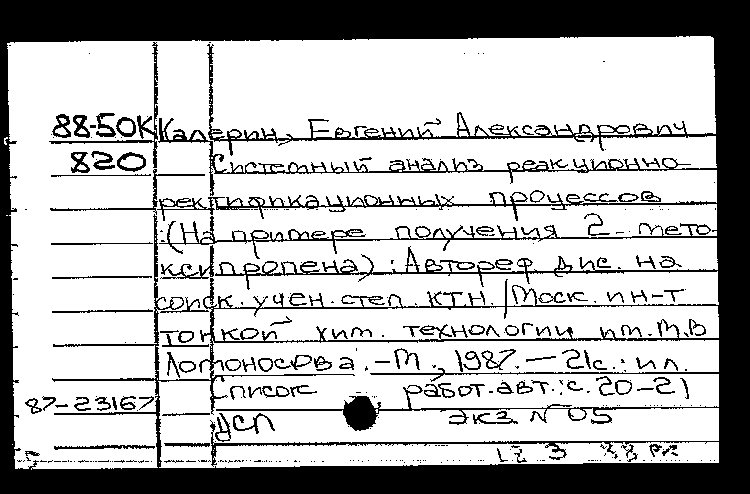 88-50К Калерин, Евгений Александрович
820 Системный анализ реакционно-
ректификационных процессов
(На примере получения 2-мето-
ксипропена) : Автореф. дис. на
соиск. учен. степ. к.т.н. / Моск. ин-т
тонкой хим. технологии им. М.В
Ломоносова. - М., 1987. - 21с. : ил.
Список работ. авт.: с. 20-21
87-23167
ДСП экз. N 05